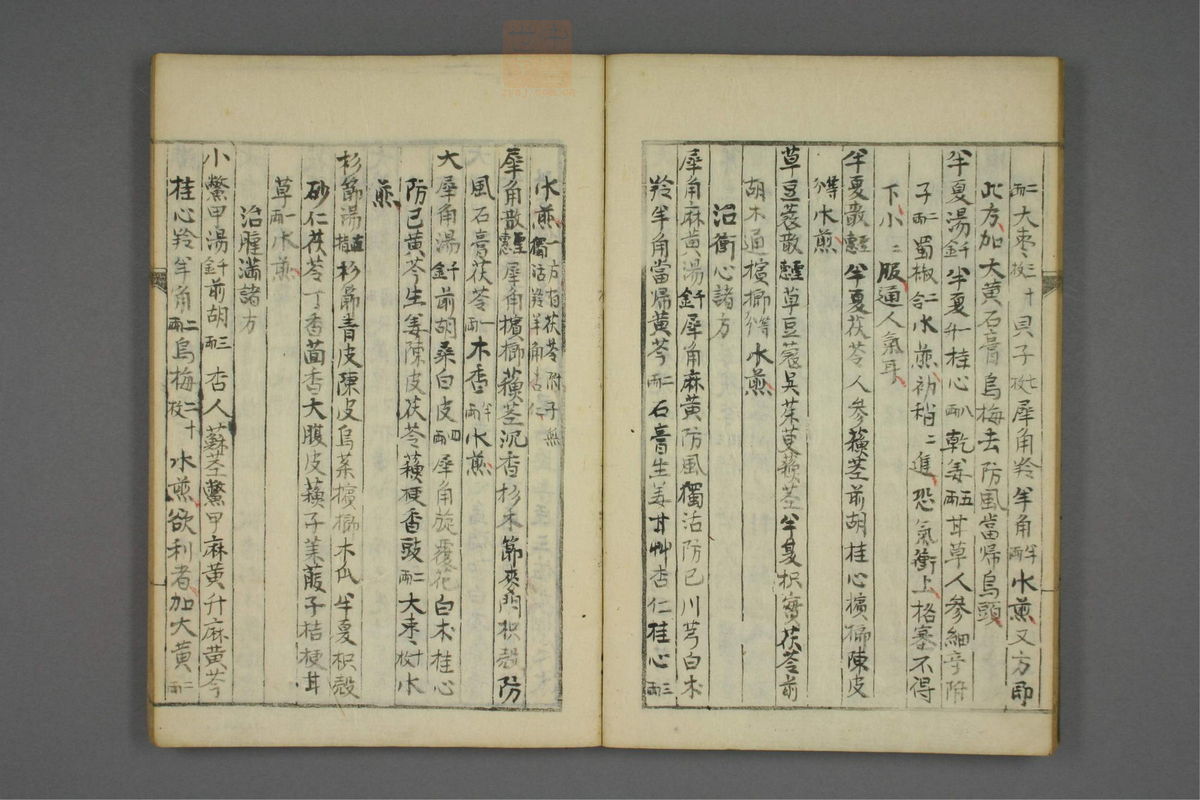 二兩大棗三十枚貝子七枚犀角羚羊角半兩水煎又方即
此方加大黃石膏烏梅去防風當歸烏頭
半夏湯千金半夏一升桂心八兩乾姜五兩甘草人參細辛附
子二兩蜀椒二合水煎初稍〻進恐氣衝上格塞不得
下小〻服通人氣耳
半夏散聖惠半夏茯苓人參蘓莖前胡桂心檳榔陳皮
等分水煎
草豆蔲散聖惠草豆蔲吳茱萸蘓莖半夏枳實茯苓前
胡木通檳榔等分水煎
治衝心諸方
犀角麻黃湯千金犀角麻黃防風獨活防已川芎白朮
羚羊角當㱕黃芩二兩石膏生姜甘艸杏仁桂心三兩
水煎一方有茯苓附子無獨活羚羊角杏仁
犀角散聖惠犀角檳榔蘓莖沉香杉木節麥門枳殼防
風石膏茯苓一兩木香半兩水煎
大犀角湯千金前胡桑白皮四兩犀角旋覆花白朮桂心
防已黃芩生姜陳皮茯苓蘓梗香豉二兩大棗十枚水
煎
杉節湯直指杉節青皮陳皮烏藥檳榔木瓜半夏枳殼
砂仁茯苓丁香茴香大腹皮蘓子萊菔子桔梗甘
草一兩水煎
治腫滿諸方
小鱉甲湯千金前胡三兩杏人蘇莖鱉甲麻黃升麻黃芩
桂心羚羊角二兩烏梅二十枚水煎欲利者加大黃二兩